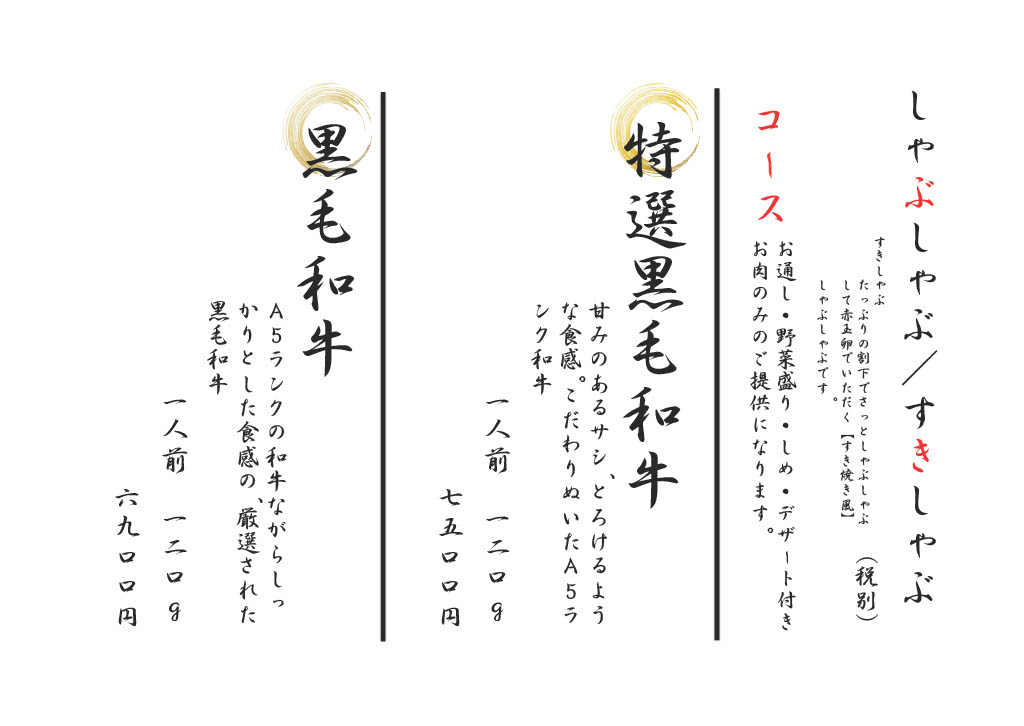 しゃぶしゃぶ／すきしゃぶ
（税別）
すきしゃぶ
たっぷりの割下でさっとしゃぶしゃぶ
して赤玉卵でいただく【すき焼き風】
しゃぶしゃぶです。
コース
お通し・野菜盛り・しめ・デザート付き
お肉のみのご提供になります。
特選黒毛和牛
甘みのあるサシ、とろけるよう
な食感。こだわりぬいたA5ラ
ンク和牛
一人前 一二〇g
七五〇〇円
黒毛和牛
A5ランクの和牛ながらしっ
かりとした食感の、厳選された
黒毛和牛
一人前 一二〇g
六九〇〇円